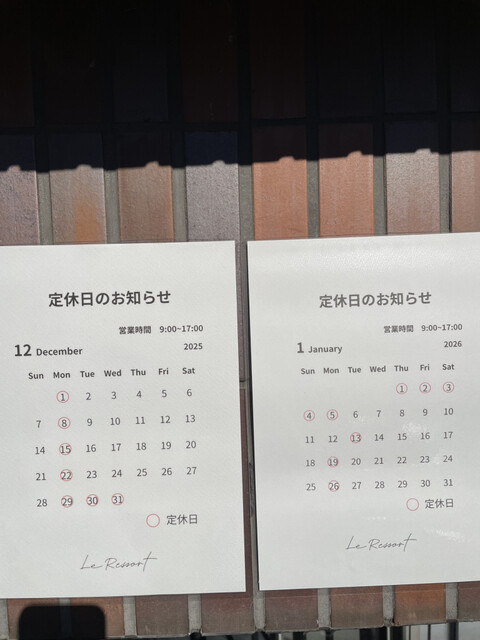 定休日のお知らせ
営業時間 9:00~17:00
12 December 2025
Sun Mon Tue Wed Thu Fri Sat
1 2 3 4 5 6
7 8 9 10 11 12 13
14 15 16 17 18 19 20
21 22 23 24 25 26 27
28 29 30 31
定休日
Le Ressort
定休日のお知らせ
営業時間 9:00~17:00
1 January 2026
Sun Mon Tue Wed Thu Fri Sat
1 2 3
4 5 6 7 8 9 10
11 12 13 14 15 16 17
18 19 20 21 22 23 24
25 26 27 28 29 30 31
定休日
Le Ressort